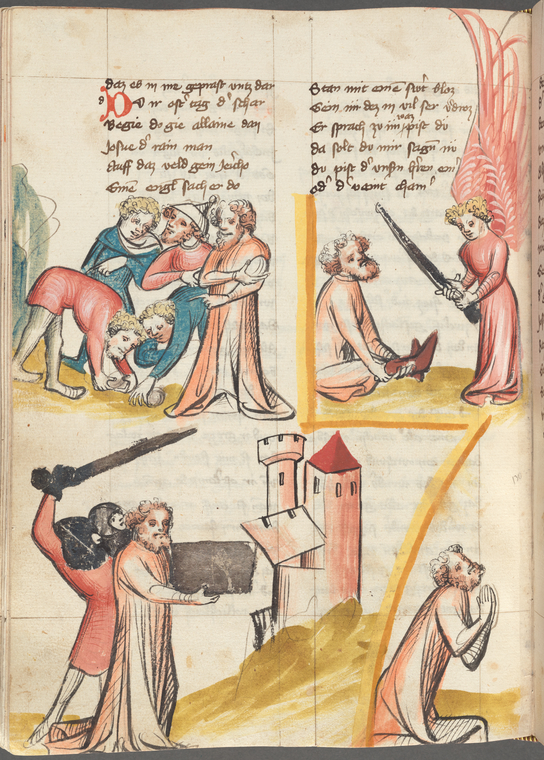 daz eb in me geprast untz dar
Do er ost tag der schar
Begie do gie allaine dan
Josue der rain man
Auff daz veld gein Jericho
Einē engl sach er do
Stan mit eine swt bloz
Sein in dez in vil ser vdroz
Er sprach zv im pist dv
da solt do mir sagn nv
dv pist der unsn hren ein
od der veint chain